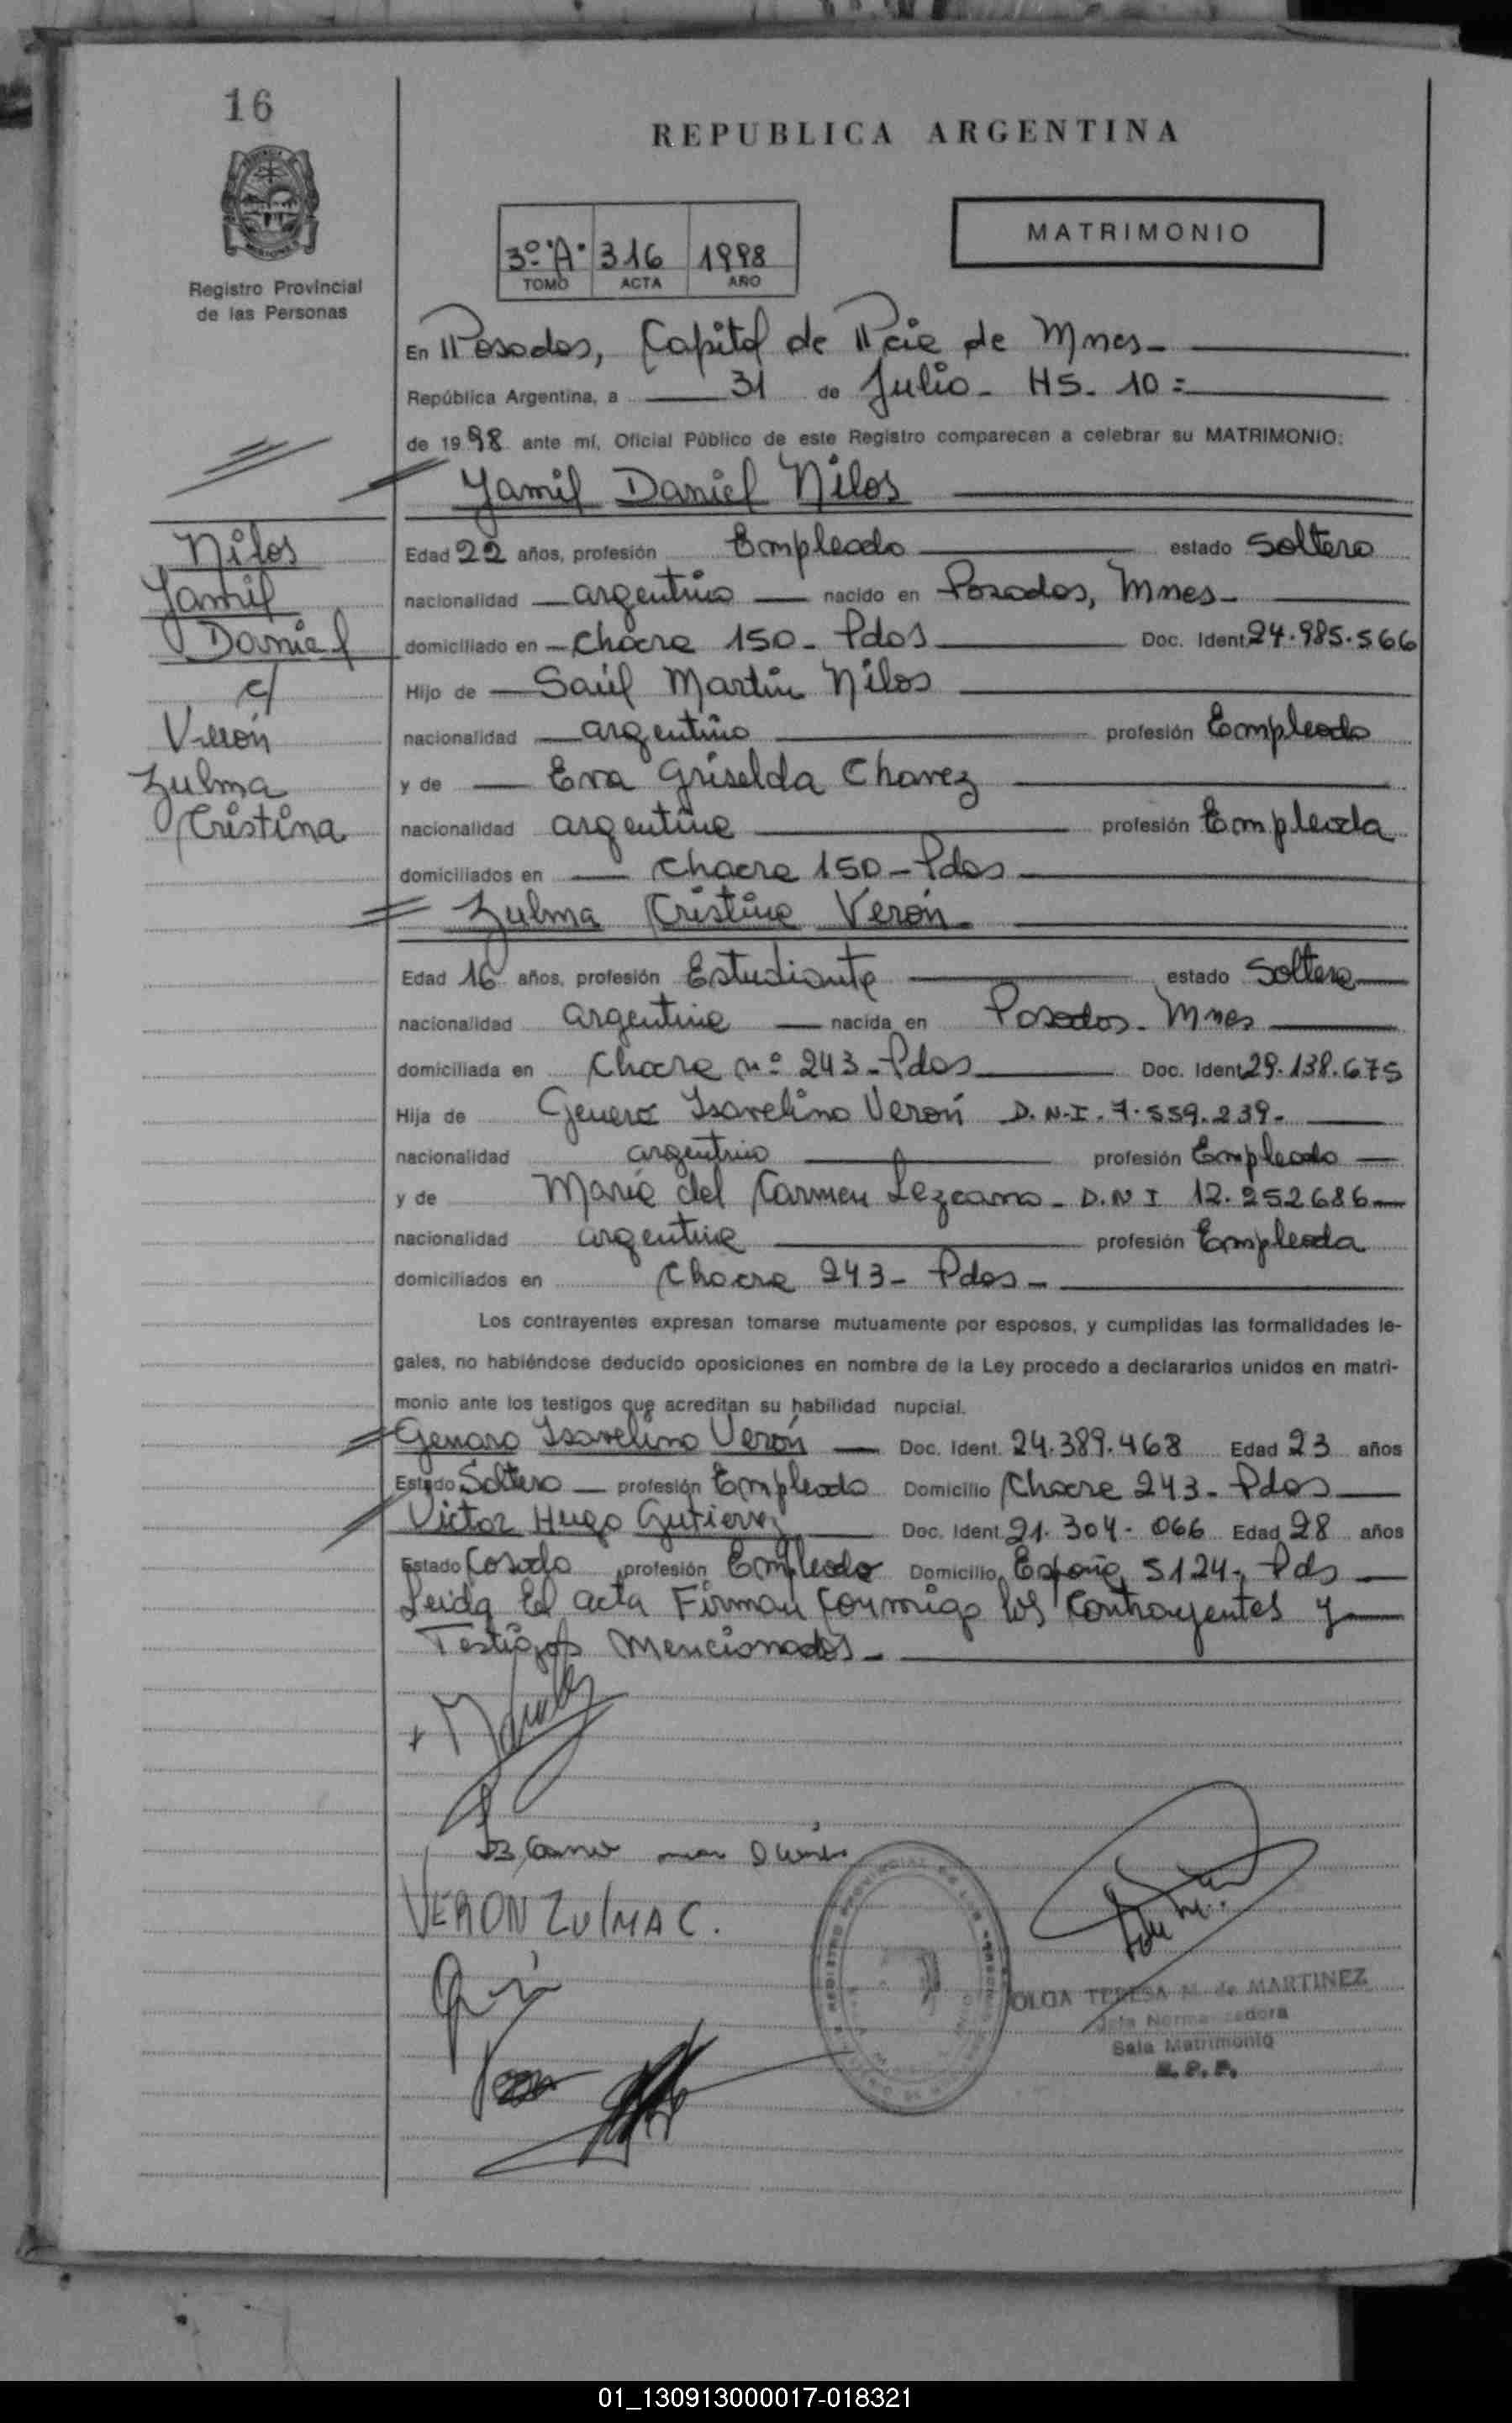 16
REPUBLICA ARGENTINA
MATRIMONIO
3º "A" 316 1998
TOMO ACTA AÑO
Registro Provincial
de las Personas
En Posadas, Capital de Pcia de Mnes-
República Argentina, a 31 de Julio - HS. 10 =
de 1998 ante mí, Oficial Público de este Registro comparecen a celebrar su MATRIMONIO:
Yamil Daniel Nilos
Nilos
Yamil
Daniel
c/
Verón
Zulma
Cristina
Edad 22 años, profesión Empleado estado Soltero
nacionalidad argentino nacido en Posadas, Mnes-
domiciliado en Chacra 150 - Pdas Doc. Ident 24.985.566
Hijo de Saúl Martin Nilos
nacionalidad argentino profesión Empleado
y de Eva Griselda Chavez
nacionalidad argentina profesión Empleada
domiciliados en Chacra 150 - Pdas
Zulma Cristina Verón
Edad 16 años, profesión Estudiante estado Soltera
nacionalidad argentina nacida en Posadas - Mnes
domiciliada en Chacra nº 243 - Pdas Doc. Ident 29.138.675
Hija de Genaro Isavelino Verón D.N.I. 7.559.239-
nacionalidad argentino profesión Empleado
y de Maria del Carmen Lezcano - D.N I 12.252686
nacionalidad argentina profesión Empleada
domiciliados en Chacra 243 - Pdas -
Los contrayentes expresan tomarse mutuamente por esposos, y cumplidas las formalidades le-
gales, no habiéndose deducido oposiciones en nombre de la Ley procedo a declararlos unidos en matri-
monio ante los testigos que acreditan su habilidad nupcial.
Genaro Isavelino Verón Doc. Ident. 24.389.468 Edad 23 años
Estado Soltero profesión Empleado Domicilio Chacra 243 - Pdas
Victor Hugo Gutierrez Doc. Ident. 21.304-066 Edad 28 años
Estado Casado profesión Empleado Domicilio España 5124, Pds
Leida el acta Firman conmigo los Contrayentes y
Testigos Mencionados -
VERON ZULMA C.
OLGA TERESA M. de MARTINEZ
Sala Matrimonio
R.P.P.
01_130913000017-018321